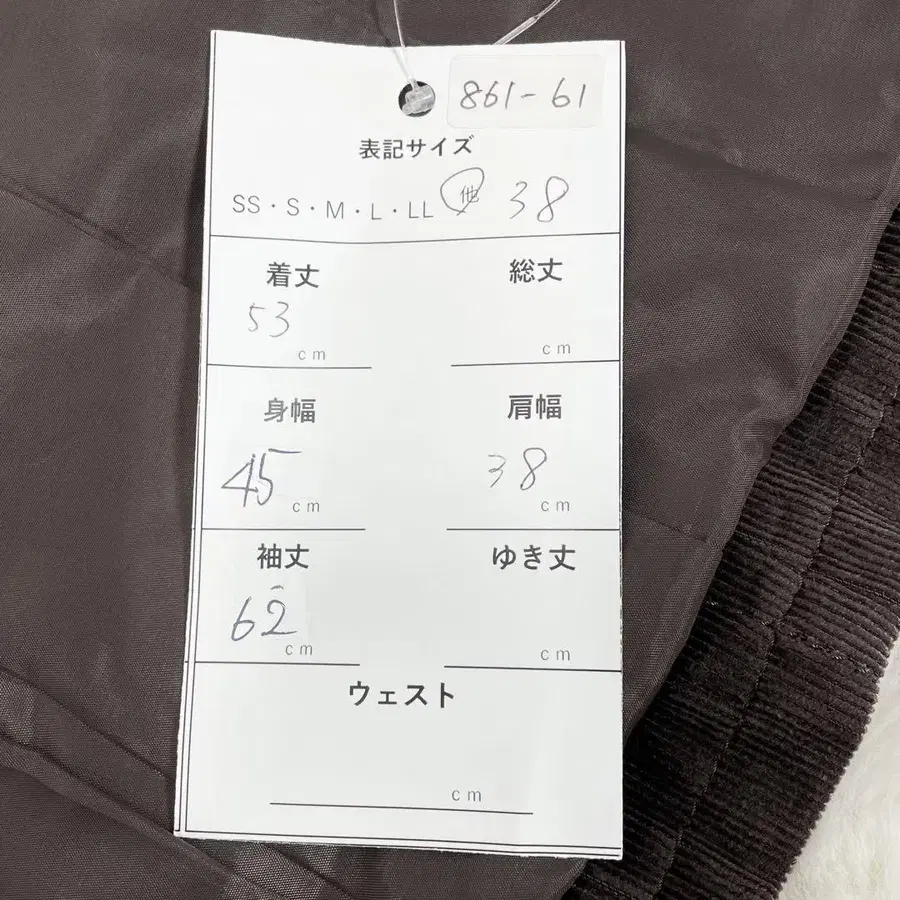 861-61
表記サイズ
SS・S・M・L・LL 他 38
着丈 総丈
53
cm cm
身幅 肩幅
45 38
cm cm
袖丈 ゆき丈
62
cm cm
ウェスト
cm